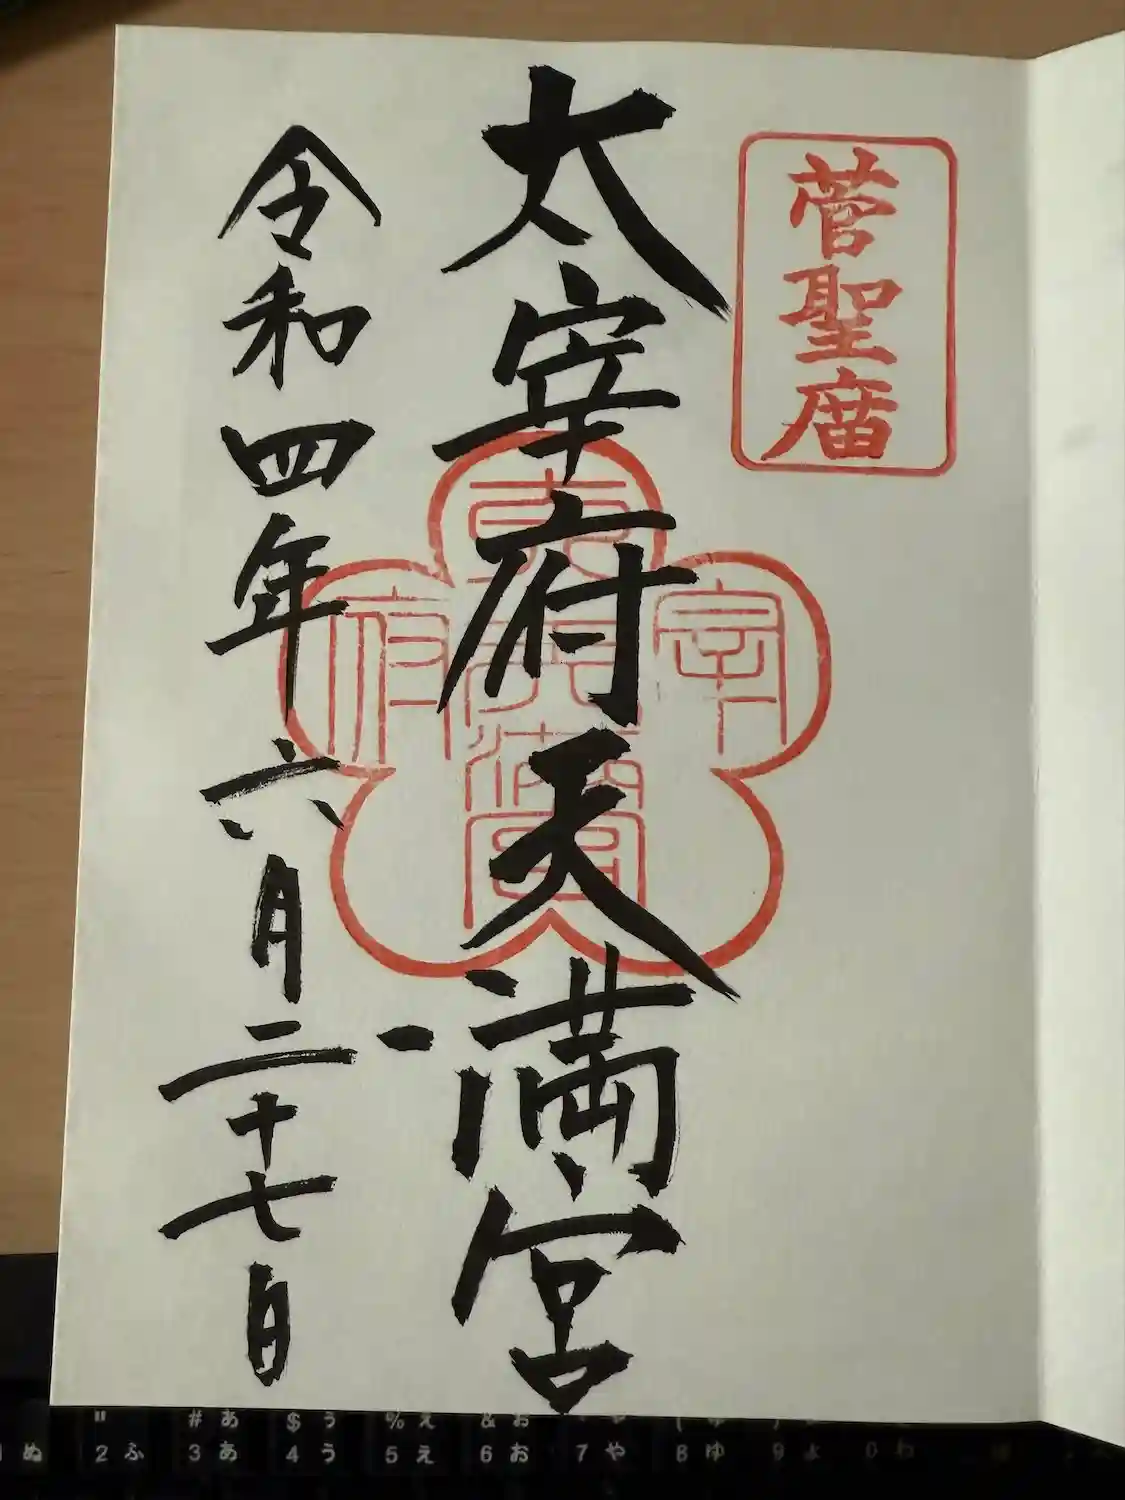 菅聖庿
太宰府天満宮
令和四年六月二十七日
宰
府
満
宮
" # あ $ ぅ % ぇ & ぉ
ぬ 2 ふ 3 あ 4 う 5 え 6 お 7 や 8 ゆ 9 よ 0 わ